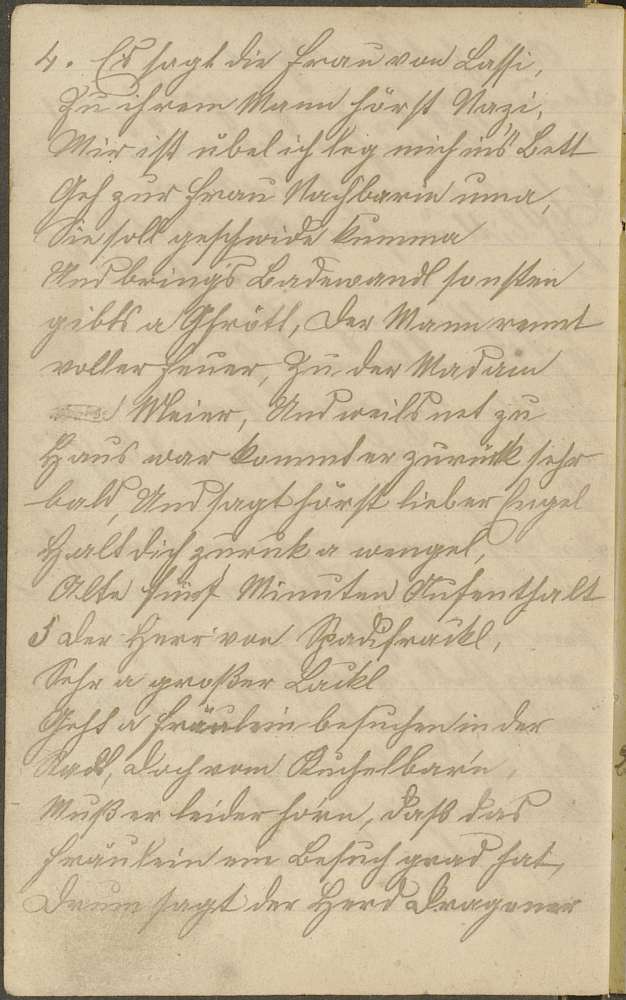 4. Es sagt die Frau von Lassi,
Zu ihrem Mann hörst Nazi,
Mir ist übel ich leg mich ins Bett
Geh zur Frau Nachbarin uma,
Sie soll geschwide kumma
Und brings Badewandl sonsten
gibts a Gfrött, Der Mann rennt
voller Feuer, Zu der Madam
Meier, Und weils net zu
Haus war kommt er zurück sehr
bald, Und sagt hörst lieber Engel
Halt dich zurük a wengel,
Alte fünf Minuten Aufenthalt
5 Der Herr von Spadifrackl,
Sehr a großer Lackl
Geht a Fräulein besuchen in der
Stadt, doch vom Kuchelbar'n,
Muß er leider hörn, daß das
Fräulein ein Besuch grad hat,
Drum sagt der Herr Dragoner